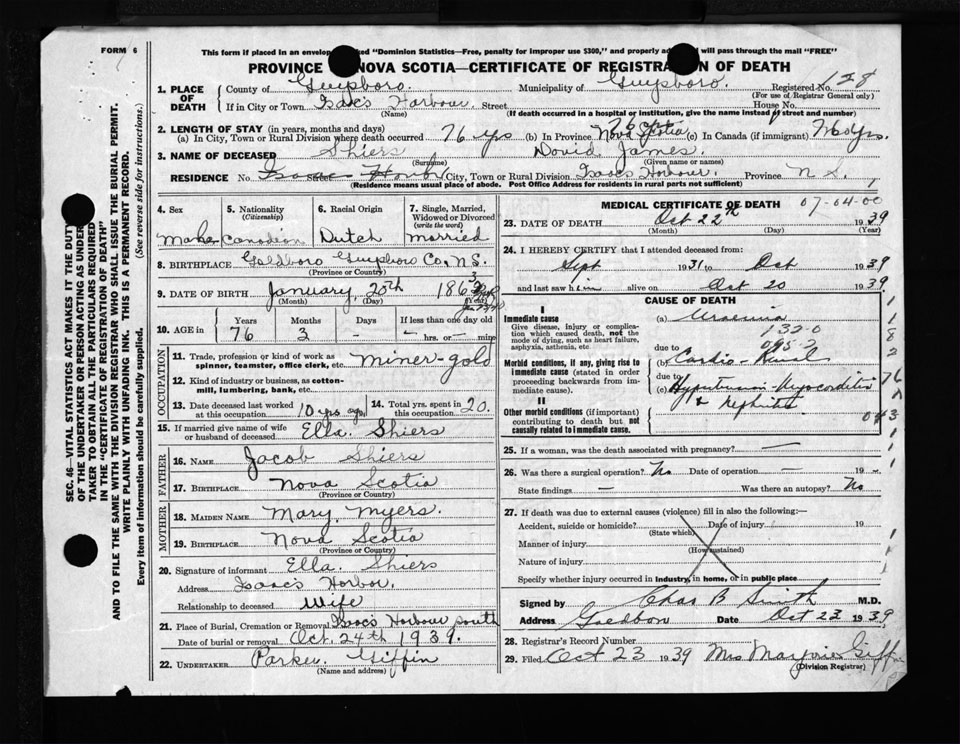 FORM 6
This form if placed in an envelop ked "Dominion Statistics—Free, penalty for improper use $300," and properly ad will pass through the mail "FREE"
PROVINCE NOVA SCOTIA—CERTIFICATE OF REGISTRAT N OF DEATH
1. PLACE OF DEATH
County of Guysboro. Municipality of Guysboro. Registered No. 128
(For use of Registrar General only)
If in City or Town Isacs Harbour. Street House No.
(Name) (If death occurred in a hospital or institution, give the name instead of street and number)
2. LENGTH OF STAY (in years, months and days)
(a) In City, Town or Rural Division where death occurred 76 yrs (b) In Province Nova Scotia (c) In Canada (if immigrant) 76 yrs.
3. NAME OF DECEASED Shiers David James.
(Surname) (Given name or names)
RESIDENCE No. Isaacs Street Harbor City, Town or Rural Division Isaacs Harbour. Province N S.
(Residence means usual place of abode. Post Office Address for residents in rural parts not sufficient)
4. Sex
Male
5. Nationality
(Citizenship)
Canadian
6. Racial Origin
Dutch
7. Single, Married, Widowed or Divorced
(write the word)
married
8. BIRTHPLACE Goldboro Guysboro Co, N.S.
(Province or Country)
9. DATE OF BIRTH January, 25th 1863
(Month) (Day) (Year)
10. AGE in
Years Months Days If less than one day old
76 3 - - hrs. or - mins
OCCUPATION
11. Trade, profession or kind of work as spinner, teamster, office clerk, etc. miner-gold
12. Kind of industry or business, as cotton-mill, lumbering, bank, etc.
13. Date deceased last worked at this occupation 10 yrs ago
14. Total yrs. spent in this occupation 20.
15. If married give name of wife or husband of deceased Ella Shiers
FATHER
16. NAME Jacob Shiers
17. BIRTHPLACE Nova Scotia
(Province or Country)
MOTHER
18. MAIDEN NAME Mary Myers.
19. BIRTHPLACE Nova Scotia
(Province or Country)
20. Signature of informant Ella Shiers
Address Isaacs Harbor.
Relationship to deceased Wife
21. Place of Burial, Cremation or Removal Isaacs Harbour south
Date of burial or removal Oct. 24th 1939.
22. UNDERTAKER Parker Giffin
(Name and address)
MEDICAL CERTIFICATE OF DEATH 07-04-00
23. DATE OF DEATH Oct 22th 1939
(Month) (Day) (Year)
24. I HEREBY CERTIFY that I attended deceased from:
Sept 1931 to Oct 1939
and last saw him alive on Oct 20 1939.
CAUSE OF DEATH
I
Immediate cause
Give disease, injury or complication which caused death, not the mode of dying, such as heart failure, asphyxia, asthenia, etc.
(a) Uraemia
132-0
due to
Morbid conditions, if any, giving rise to immediate cause (stated in order proceeding backwards from immediate cause).
(b) Cardio-Renal
due to
(c) Hypertension-Myocarditis & Nephritis
II
Other morbid conditions (if important) contributing to death but not causally related to immediate cause.
25. If a woman, was the death associated with pregnancy? —
26. Was there a surgical operation? No Date of operation — 19 -
State findings — Was there an autopsy? No
27. If death was due to external causes (violence) fill in also the following:—
Accident, suicide or homicide? Date of injury 19
(State which)
Manner of injury
(How sustained)
Nature of injury
Specify whether injury occurred in industry, in home, or in public place
Signed by Chas B Smith M.D.
Address Goldboro Date Oct 23 1939
28. Registrar's Record Number
29. Filed Oct 23 1939 Mrs Marjorie Giffin
(Division Registrar)
SEC. 46—VITAL STATISTICS ACT MAKES IT THE DUTY
OF THE UNDERTAKER OR PERSON ACTING AS UNDER-
TAKER TO OBTAIN ALL THE PARTICULARS REQUIRED
IN THE "CERTIFICATE OF REGISTRATION OF DEATH"
AND TO FILE THE SAME WITH THE DIVISION REGISTRAR WHO SHALL ISSUE THE BURIAL PERMIT.
WRITE PLAINLY WITH UNFADING INK. THIS IS A PERMANENT RECORD.
Every item of information should be carefully supplied. (See reverse side for instructions.)